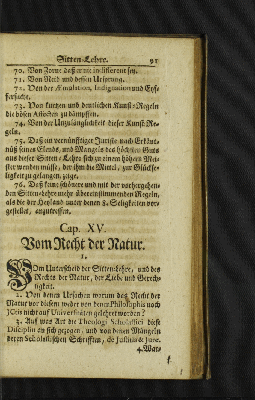 Sitten-Lehre. 91
70. Von Zorne daß er nit indifferent sey.
71. Von Neid und dessen Ursprung.
72. Von der Æmulation, Indignation und Eyf-
fersucht.
73. Von kurtzen und deutlichen Kunst-Regeln
die bösen Affecten zu dämpffen.
74. Von der Unzulänglichkeit dieser Kunst-Re-
geln.
75. Daß ein vernünfftiger Juriste nach Erkänt-
nüß seines Elends, und Mangels des höchsten Guts
aus dieser Sitten-Lehre sich zu einem höhern Mei-
ster wenden müsse, der ihm die Mittel, zur Glückse-
ligkeit zu gelangen, zeige.
76. Daß keine schönere und mit der vorhergehen-
den Sittenlehre mehr übereinstimmenden Regeln,
als die der Heyland unter denen 8. Seligkeiten vor-
gestellet, anzutreffen.
Cap. XV.
Vom Recht der Natur.
1.
Vom Unterscheid der Sittenlehre, und des
Rechts der Natur, der Lieb, und Gerech-
tigkeit.
2. Von denen Ursachen warum das Recht der
Natur vor diesem weder von denen Philosophis noch
JCtis nicht auf Universitäten gelehret worden?
3. Auf was Art die Theologi Scholastici diese
Disciplin an sich gezogen, und von denen Mängeln
deren Scholastischen Schrifften, de Justitia & Jure.
4. War-